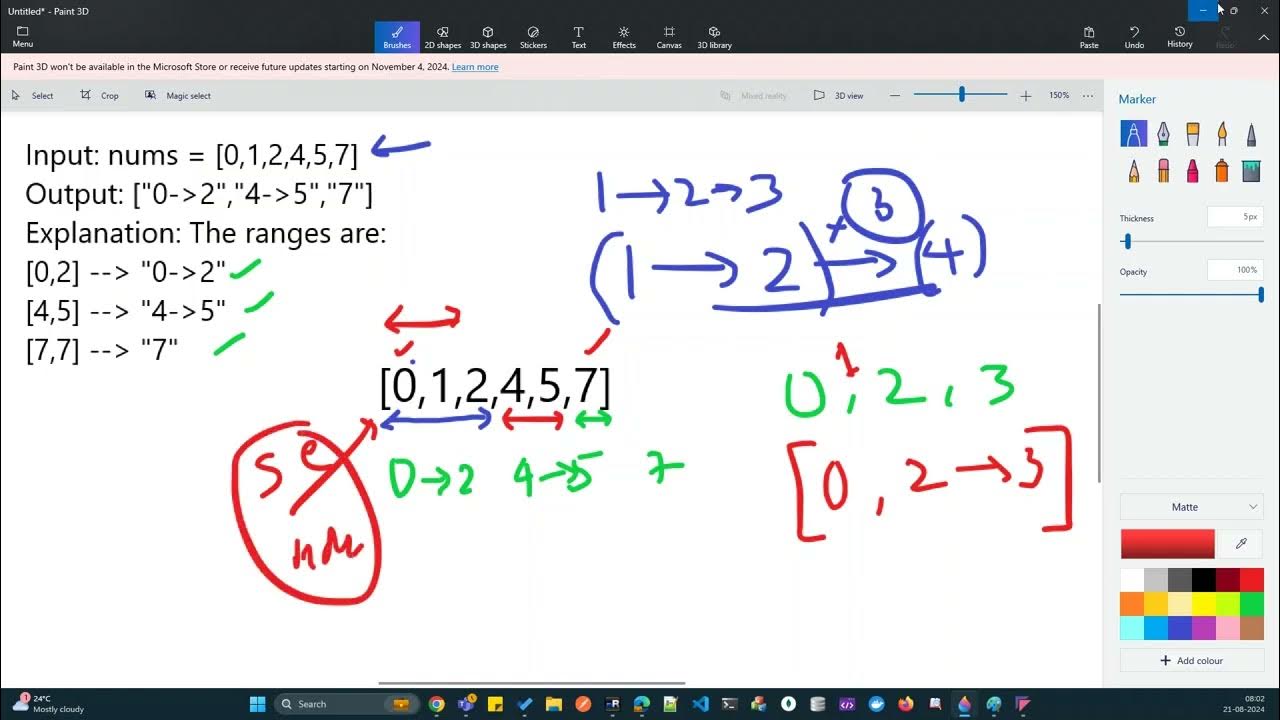 Untitled* - Paint 3D
Menu
Brushes
2D shapes
3D shapes
Stickers
Text
Effects
Canvas
3D library
Paste
Undo
History
Redo
Paint 3D won't be available in the Microsoft Store or receive future updates starting on November 4, 2024. Learn more
Select
Crop
Magic select
Mixed reality
3D view
150%
Marker
Thickness
5px
Opacity
100%
Matte
Add colour
Input: nums = [0,1,2,4,5,7]
Output: ["0->2","4->5","7"]
Explanation: The ranges are:
[0,2] --> "0->2"
[4,5] --> "4->5"
[7,7] --> "7"
1→2→3
3
(1→2)→(4)
[0,1,2,4,5,7]
0→2 4→5 7
s e
1
0, 2, 3
[0, 2→3]
1
24°C
Mostly cloudy
Search
08:02
21-08-2024